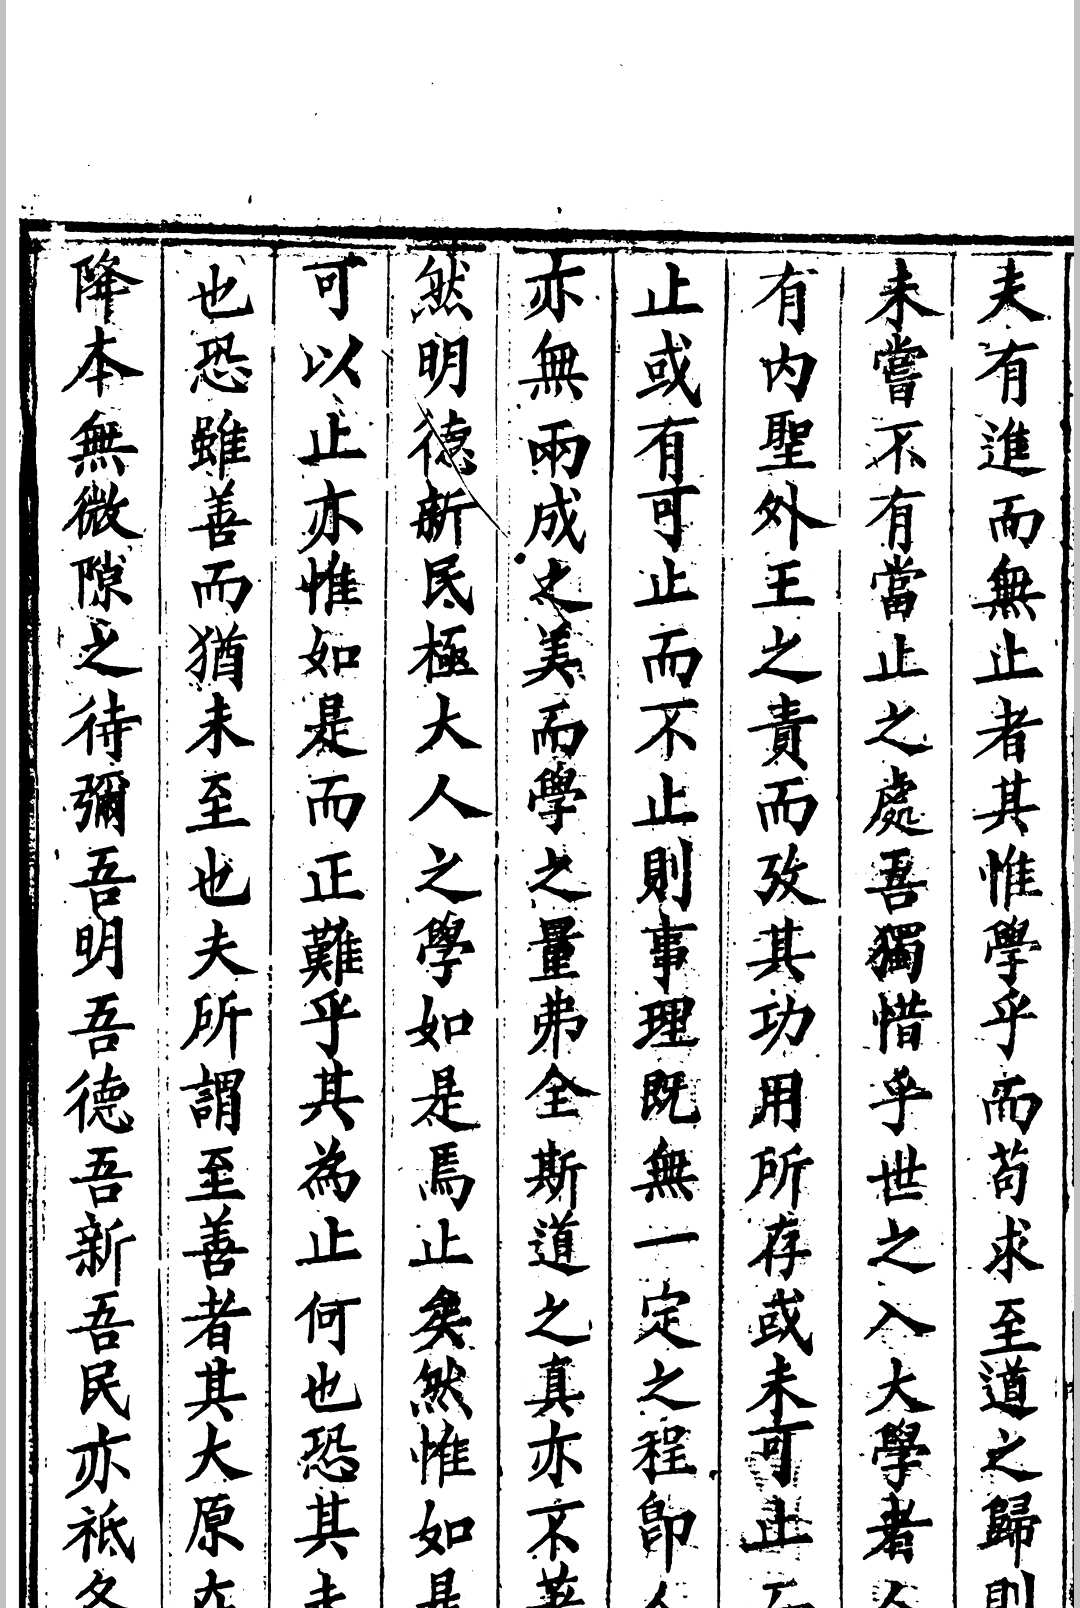 夫有進而無止者其惟學乎而苟求至道之歸則
未嘗不有當止之處吾獨惜乎世之入大學者人
有內聖外王之責而攷其功用所存或未可止而
止或有可止而不止則事理既無一定之程即人
亦無兩成之美而學之量弗全斯道之真亦不著
然明德新民極大人之學如是焉止矣然惟如是
可以止亦惟如是而正難乎其為止何也恐其未
也恐雖善而猶未至也夫所謂至善者其大原在
降本無微隙之待彌吾明吾德吾新吾民亦祗各